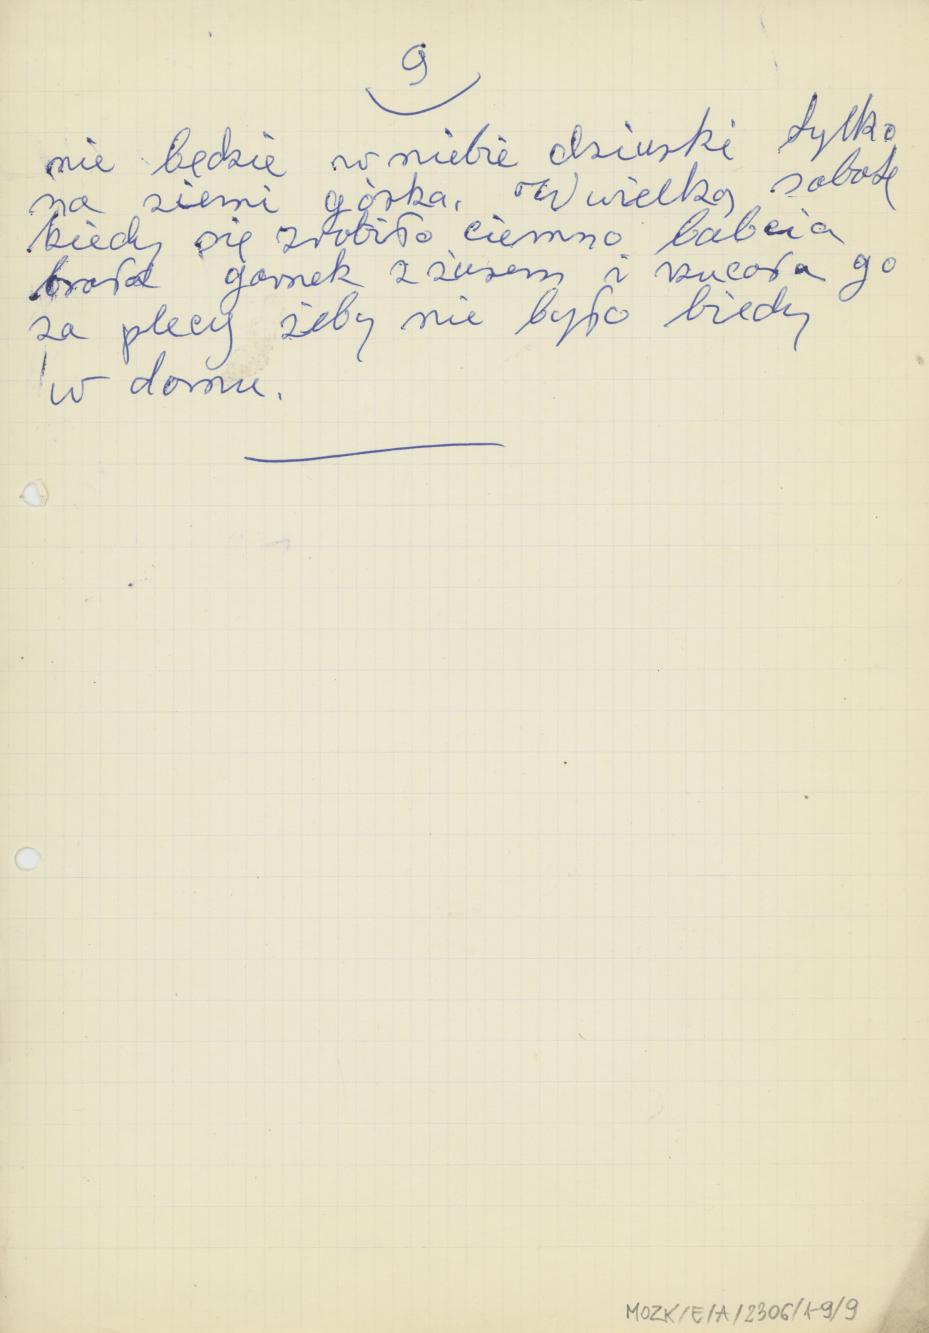 9
nie będzie w niebie dziurki tylko
na ziemi górka. W wielką sobotę
kiedy się zrobiło ciemno babcia
brała garnek z żurem i rzucała go
za plecy żeby nie było biedy
w domu.
MOZK/E/A/2306/1-9/9